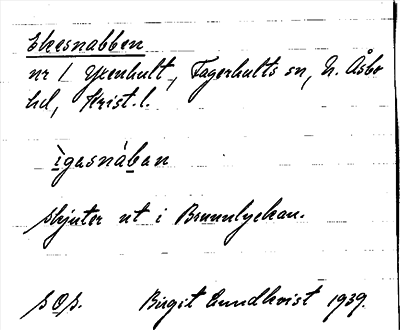 Ekesnabben
nr 1 Yxenhult, Fagerhults sn, N. Åsbo
hd, Krist. l.
ìgasnàban
skjuter ut i Brunnlyckan.
s O s. Birgit Lundkvist 1939.